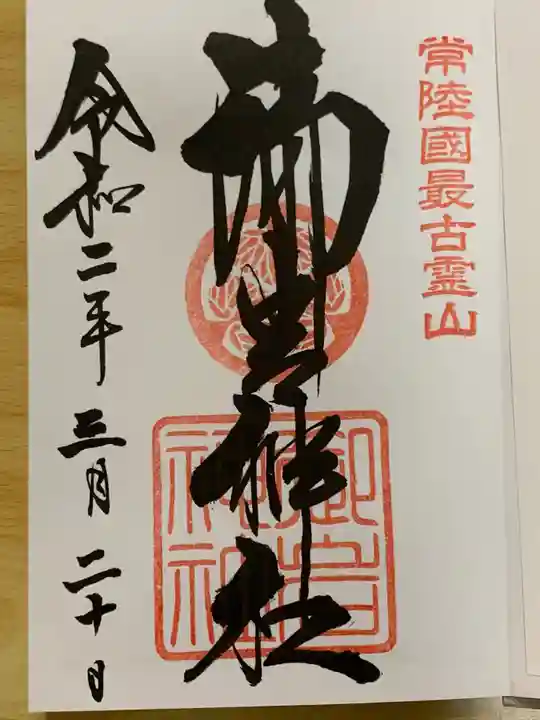 常陸國最古霊山
御岩神社
御岩神社
令和二年三月二十日